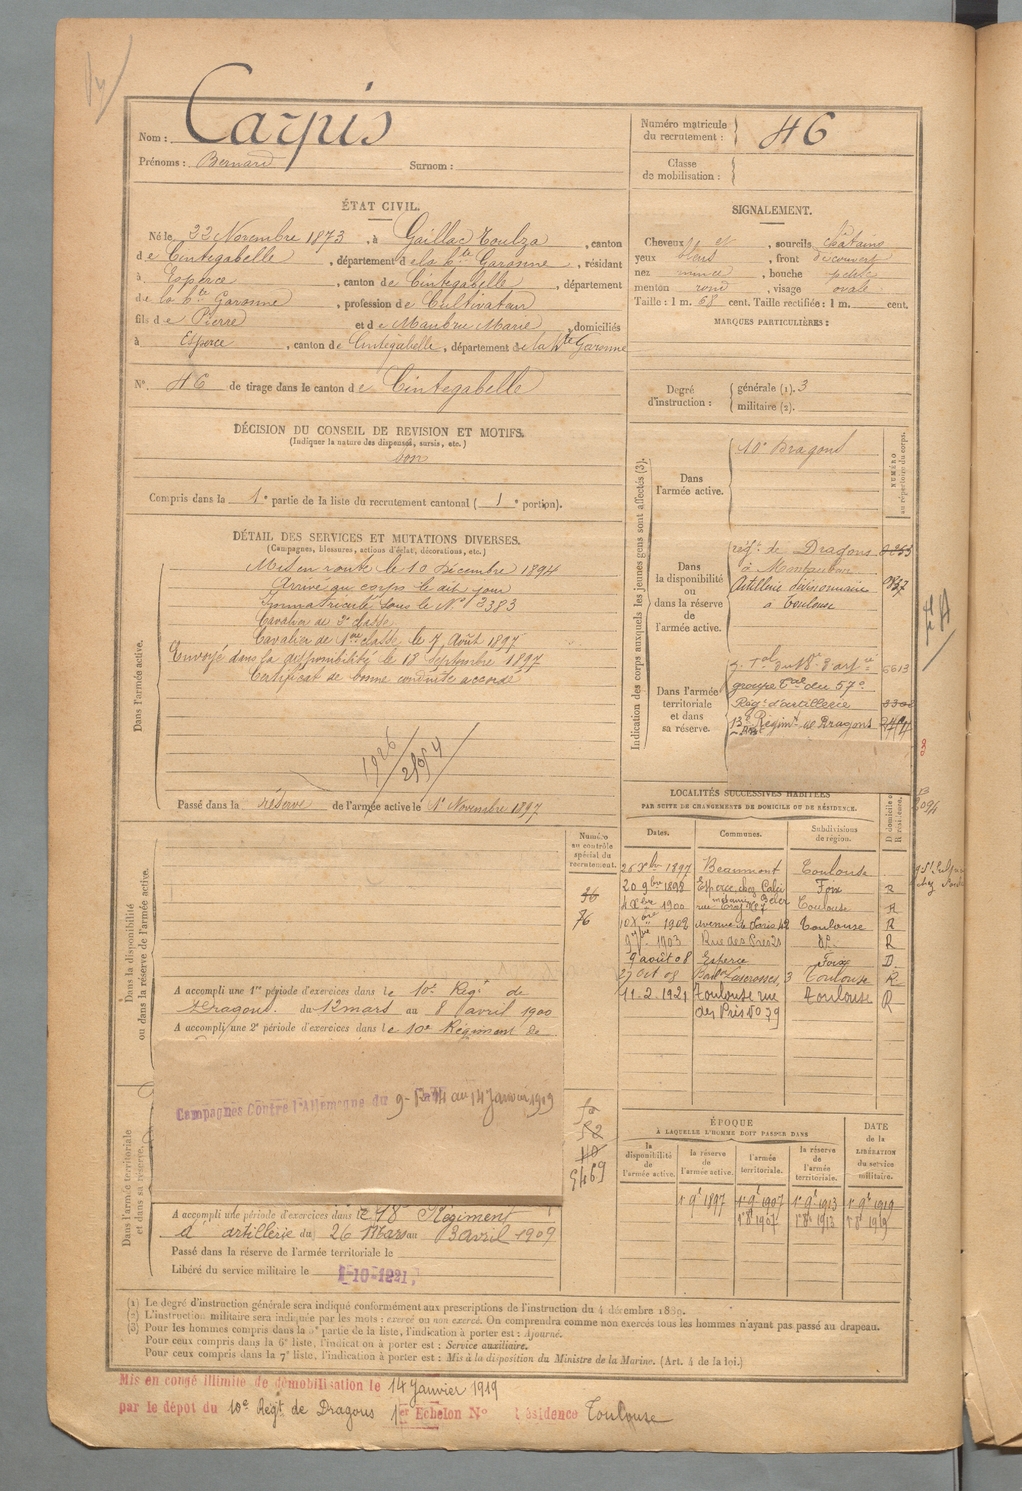 Nom : Carpis
Prénoms : Bernard Surnom :
Numéro matricule du recrutement : 46
Classe de mobilisation :
ÉTAT CIVIL.
Né le 22 Novembre 1873, à Gaillac Toulza, canton
de Cintegabelle, département de la Hte Garonne, résidant
à Esperce, canton de Cintegabelle, département
de la Hte Garonne, profession de Cultivateur
fils de Pierre et de Maubru Marie, domiciliés
à Esperce, canton de Cintegabelle, département de la Hte Garonne
N° 46 de tirage dans le canton de Cintegabelle
SIGNALEMENT.
Cheveux et, sourcils châtains
yeux bleus, front découvert
nez, bouche petite
menton rond, visage ovale
Taille : 1 m. 68 cent. Taille rectifiée : 1 m. cent.
MARQUES PARTICULIÈRES :
Degré d'instruction : générale (1). 3
militaire (2).
DÉCISION DU CONSEIL DE REVISION ET MOTIFS.
(Indiquer la nature des dispenses, sursis, etc.)
bon
Compris dans la 1e partie de la liste du recrutement cantonal (1e portion).
DÉTAIL DES SERVICES ET MUTATIONS DIVERSES.
(Campagnes, blessures, actions d'éclat, décorations, etc.)
Dans l'armée active.
Mis en route le 10 Décembre 1894
Arrivé au corps le dit jour
Immatriculé sous le N° 3383
Cavalier de 2e classe
Cavalier de 1ère classe le 7 Août 1897
Envoyé dans la disponibilité le 18 Septembre 1897
Certificat de bonne conduite accordé
1926
Passé dans la réserve de l'armée active le 1er Novembre 1897
Indication des corps auxquels les jeunes gens sont affectés (3).
NUMÉRO au répertoire du corps.
Dans l'armée active.
10e Dragons
Dans la disponibilité ou dans la réserve de l'armée active.
régt de Dragons
à Montauban
Artillerie divisionnaire
à Toulouse
Dans l'armée territoriale et dans sa réserve.
groupe Tal du 57e
Régt d'artillerie
Régimt de Dragons
LOCALITÉS SUCCESSIVES HABITÉES
PAR SUITE DE CHANGEMENTS DE DOMICILE OU DE RÉSIDENCE.
Dates. Communes. Subdivisions de région. D domicile R résidence.
26 Xbre 1897 Beaumont Toulouse
20 9bre 1898 Esperce, chez Foix R
4 Xbre 1900 Toulouse R
10 1902 Avenue de Paris 42 Toulouse R
1903 Rue des Prés 25 R
9 août 08 Esperce Foix D
27 Oct 08 Bard Lascrosses, 3 Toulouse R
11.2.1921 Toulouse rue Toulouse R
des Prés No 79
Numéro au contrôle spécial du recrutement.
36
76
Dans la disponibilité ou dans la réserve de l'armée active.
A accompli une 1re période d'exercices dans le 10e Régt de
Dragons. du 12 mars au 8 avril 1900
A accompli une 2e période d'exercices dans le 10e Régiment de
Dans l'armée territoriale et dans sa réserve.
Campagnes Contre l'Allemagne du 9- au 14 Janvier 1919
52
40
5469
A accompli une période d'exercices dans le 18e Régiment
d'artillerie du 26 Mars au 3 avril 1909
Passé dans la réserve de l'armée territoriale le
Libéré du service militaire le 1-10-1921.
ÉPOQUE
À LAQUELLE L'HOMME DOIT PASSER DANS
la disponibilité de l'armée active. la réserve de l'armée active. l'armée territoriale. la réserve de l'armée territoriale.
DATE de la LIBÉRATION du service militaire.
1er 9e 1897 1er 9e 1907 1er 9e 1913 1er 9e 1919
1er 8e 1907 1er 8e 1913 1er 8e 1919
(1) Le degré d'instruction générale sera indiqué conformément aux prescriptions de l'instruction du 4 décembre 1889.
(2) L'instruction militaire sera indiquée par les mots : exercé ou non exercé. On comprendra comme non exercés tous les hommes n'ayant pas passé au drapeau.
(3) Pour les hommes compris dans la 5e partie de la liste, l'indication à porter est : Ajourné.
Pour ceux compris dans la 6e liste, l'indication à porter est : Service auxiliaire.
Pour ceux compris dans la 7e liste, l'indication à porter est : Mis à la disposition du Ministre de la Marine. (Art. 4 de la loi.)
Mis en congé illimité de démobilisation le 14 Janvier 1919
par le dépôt du 10e Régt de Dragons 1er Echelon N° Résidence Toulouse